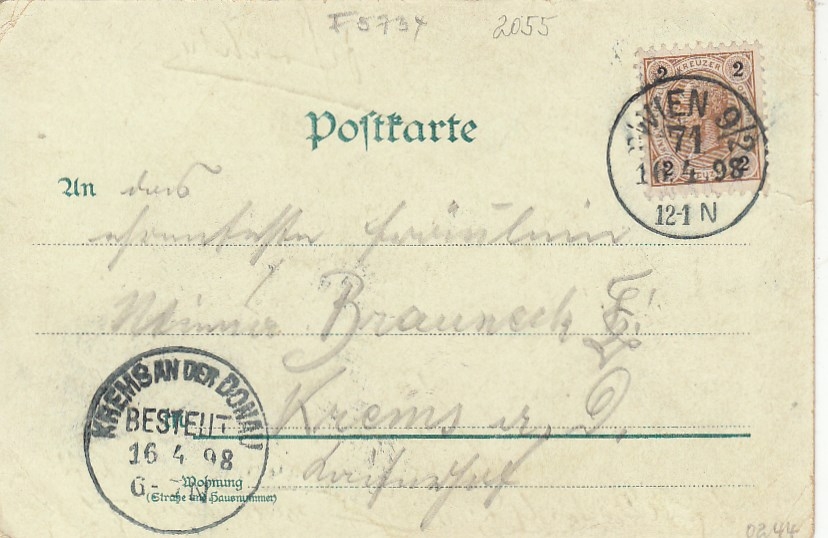 F 5734 2055
2 KREUZER 2
2 2
WIEN 9/2
71
16 4 98
12-1 N
Postkarte
An das
ehrenfeste Fräulein
Brauneck
Krems a. D.
KREMS AN DER DONAU
BESTELLT
16 4 98
6-
Wohnung
(Straße und Hausnummer)
0244